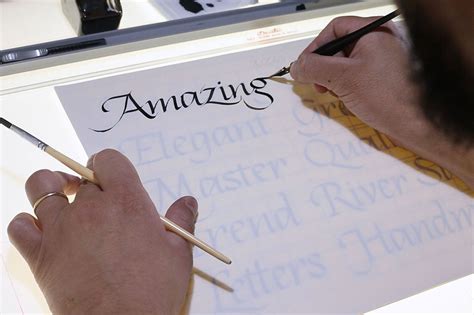 Amazing
Elegant
Master
Trend River
Letters